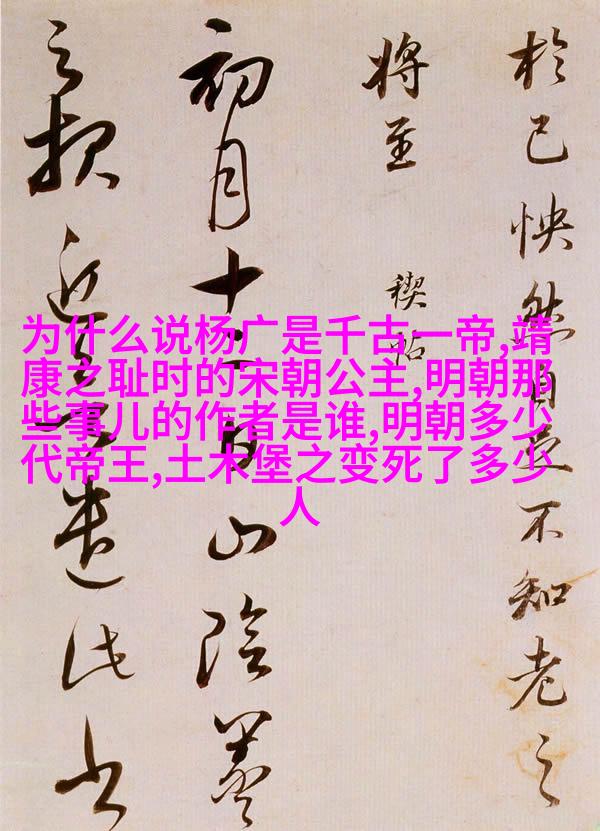 为什么说杨广是千古一帝,靖
康之耻时的宋朝公主,明朝那
些事儿的作者是谁,明朝多少
代帝王,土木堡之变死了多少
人
於己怏然自足不知老之
將至
禊帖
初月十二日山陰羲
之报近遣此书